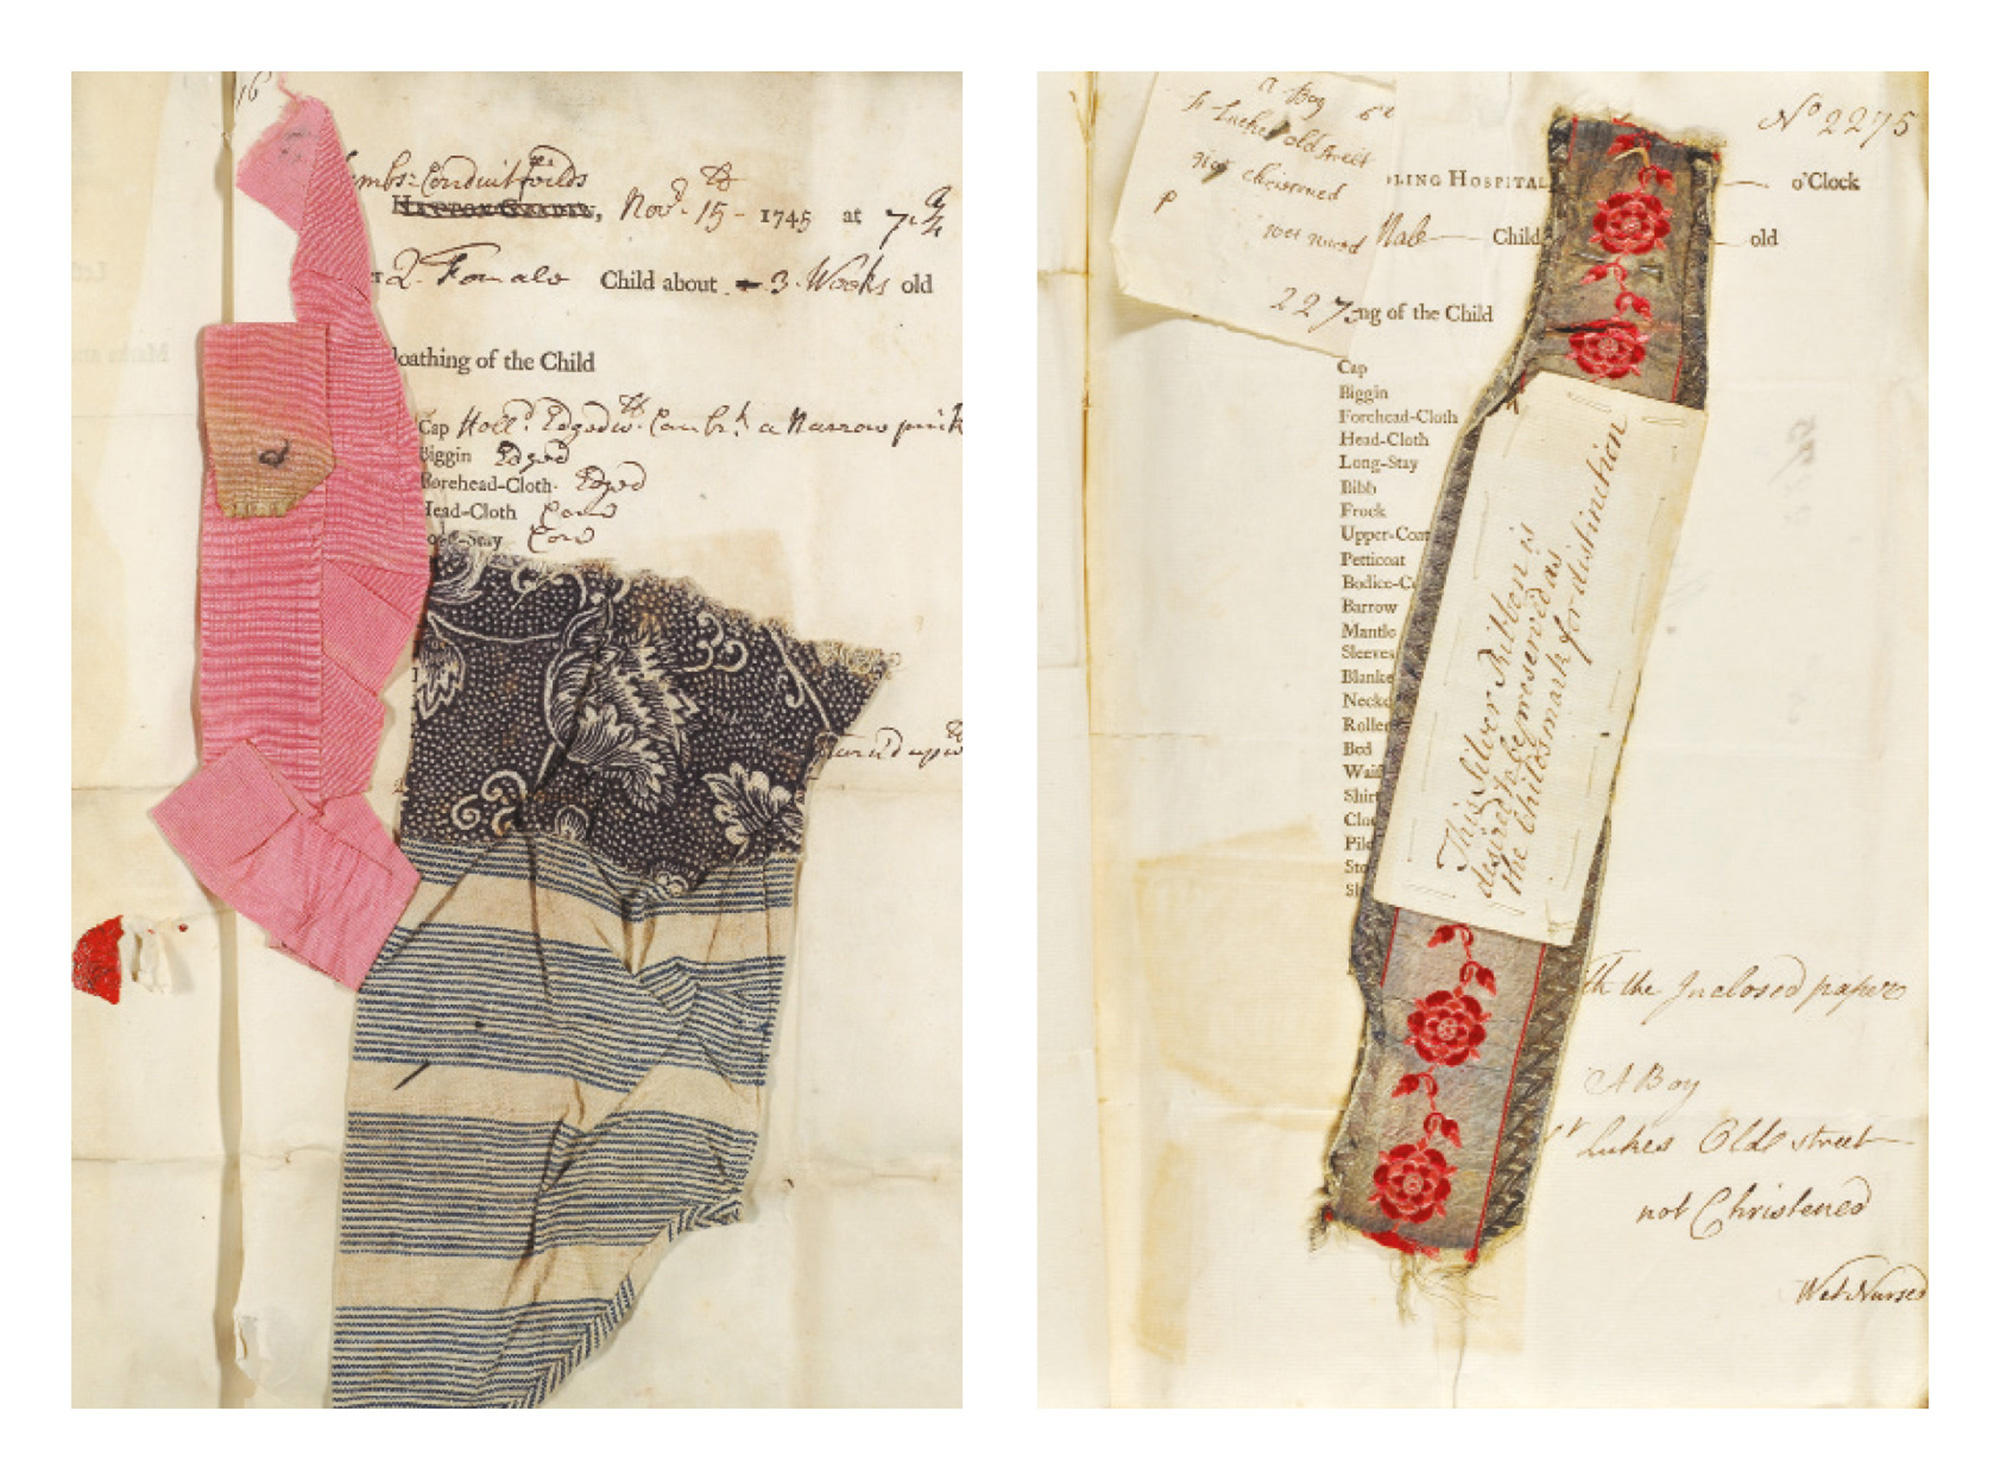 16
Conduit fields
HATTON GARDEN, Novr. 15 - 1745 at 7.
2. Female Child about 3. Weeks old
loathing of the Child
Cap Holld. Edged wth. Cambk. a Narrow pink
Biggin Edged
Forehead-Cloth Edged
Head-Cloth
turn'd up wth
a Boy
St Lukes old street
not christened
P
wet nursed
2275
No 2275
LING HOSPITAL
o'Clock
Male Child
old
ng of the Child
Cap
Biggin
Forehead-Cloth
Head-Cloth
Long-Stay
Bibb
Frock
Upper-Coat
Petticoat
Bodice-C
Barrow
Mantle
Sleeves
Blanke
Necke
Roller
Bed
Wais
Shirt
Clo
Pilc
Sto
Sh
This Silver Ribbon is
desired to be preserved as
the Childs mark for distinction
th the Inclosed paper
A Boy
St Lukes Old street
not Christened
Wet Nursed